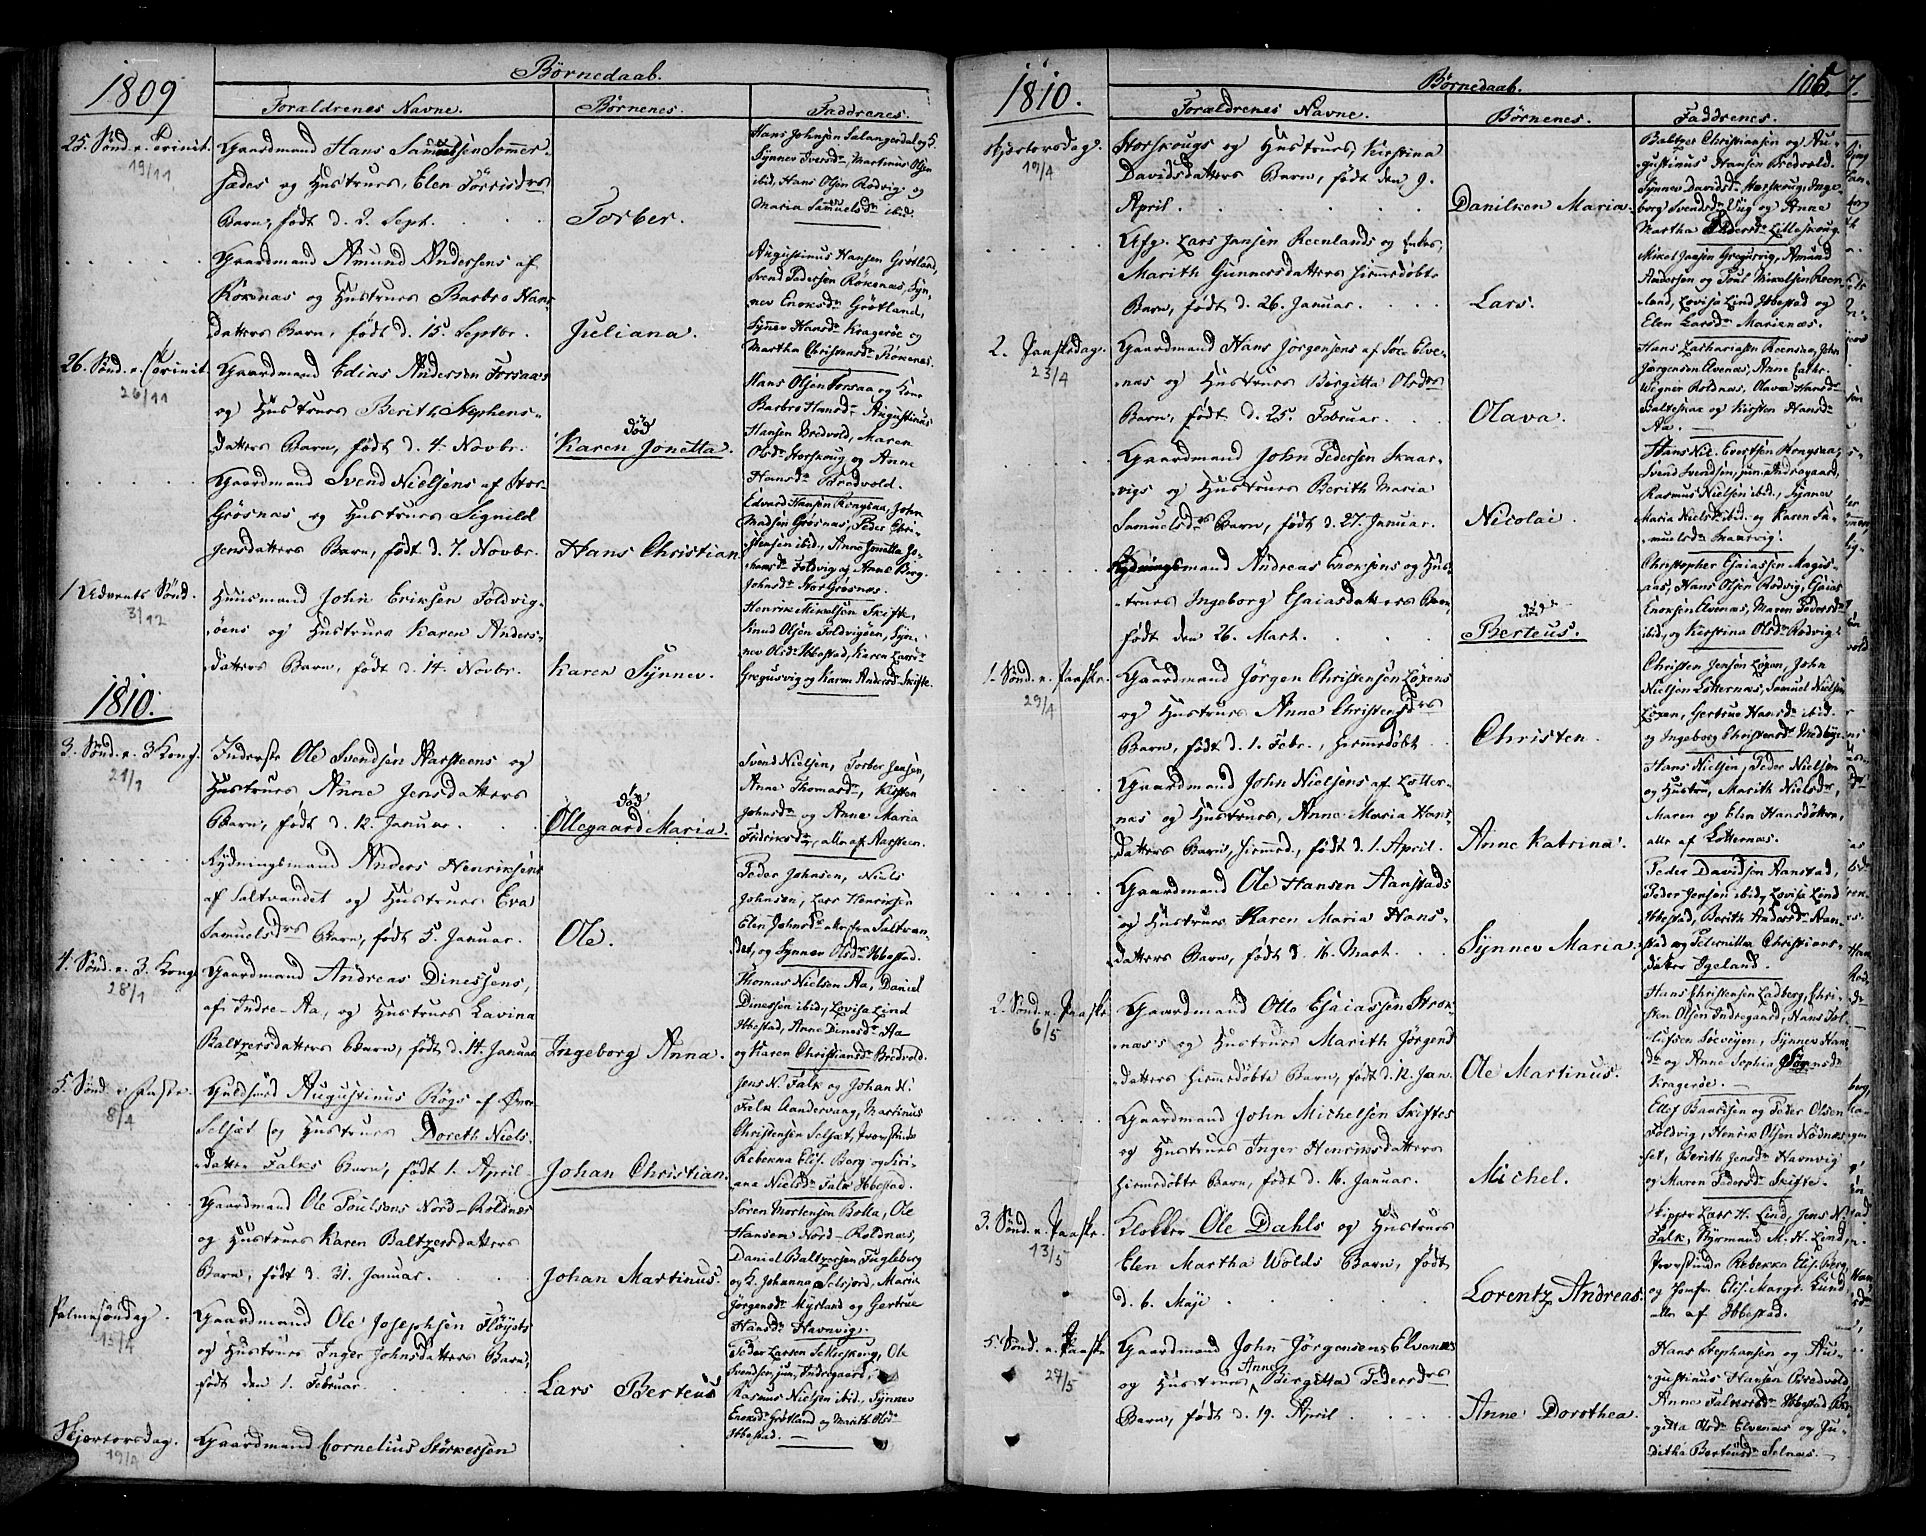 1809
Børnedaab.
Forældrenes Navne.
Børnenes.
Faddrenes.
25. Sønd. e. Trinit.
19/11
Gaardmand Hans Samuelsen Sommer-
sædes og Hustrues, Elen Torrisdrs
Barn, født d. 2. Sept.
Torber.
Hans Johnsen Salangerdal og S.
Synnev Iversdr. Martinus Olsen
ibid, Hans Olsen Rodvig og
Maria Samuelsdr. ibid.
Gaardmand Amund Andersens af
Rökenas og Hustrues Barbro Hans-
datters Barn, født d. 15. Septbr.
Juliana.
Augustinus Hansen Grotland,
Svend Pedersen Rökenas, Syn-
nev Enoksdr. Grötland,
Synnev Hansdr. Krageröe og
Martha Christensdr. Rökenes.
26. Sönd. e. Trinit.
26/11
Gaardmand Edias Andersen Forsaas
og Hustrues Berith Stephens-
datters Barn, født d. 4. Novbr.
død
Karen Jonetta.
Hans Olsen Forsaa og Kone
Barbro Hansdr. Augustinus
Hansen Bredvold, Maren
Olsdr. Storskoug og Anne
Hansdr. Bredvold.
Gaardmand Svend Nielsens af Stor-
Grösnas og Hustrues Signild
Jensdatters Barn, født d. 7. Novbr.
Hans Christian.
Edvard Hansen Rongsaa, John
Madsen Grösnas, Peder Chri-
stensen ibid., Anne Jonetta Jo-
hansdr. Foldvig og Anne Berg.
Johnsdr. Stor Grösnas.
1. Advents Sönd.
3/12
Huusmand John Eriksen Foldvig-
öens og Hustrues Karen Anders-
datters Barn, født d. 14. Novbr.
Karen Synnev.
Henrik Mikkelsen Skifte,
Knud Olsen Foldvigöen, Syn-
nev Olsdr. Ibbestad, Karen Larsdr.
Gregusvig og Karen Andersdr. Skifte.
1810.
3. Sönd. e. 3 Kong.
21/1
Inderste Ole Svendsen Aarsteens og
Hustrues Anne Jensdatters
Barn, født d. 12. Januar.
død
Ollegaard Maria.
Svend Nielsen, Torber Jensen,
Anne Thomasdr., Kirsten
Johnsdr. og Anne Maria
Fridriksdr., alle af Aarsteen.
Rydningsmand Anders Henriksens
af Saltvandet og Hustrues Eva
Samuelsdrs Barn, født 5. Januar.
Ole.
Peder Johnsen, Niels
Johnsen, Lars Henriksen
Elen Johnsdr. alle fra Saltvan-
det, og Synnev Olsdr. Ibbestad.
4. Sönd. e. 3. Kong.
28/1
Gaardmand Andreas Dinessens,
af Indre-Aa, og Hustrues Lavina
Baltzersdatters Barn, født d. 14. Januar
Ingeborg Anna.
Thomas Nielsen Aa, Daniel
Dinessen ibid, Lovisa Lind
Ibbestad, Anne Dinesdr. Aa
og Karen Christiansdr. Bredvold.
5. Sönd. e. Faste.
8/4
Guldsmed Augustinus Rögs af
Selsæt og Hustrues Doreth Niels-
datter Falks Barn, født 1. April
Johan Christian.
Jens N. Falk og Johan N.
Falk Aandervaag, Martinus
Christensen Selsæt, Provstinde
Rebekka Elis. Berg og Siri-
ana Nielsdr. Falk Ibbestad.
Gaardmand Ole Poulsens Nord-Roldnæs
og Hustrues Karen Baltzersdatters
Barn, født d. 31. Januar.
Johan Martinus.
Sören Mortensen Bolla, Ole
Hansen Nord-Roldnæs,
Daniel Baltzersen Fugleberg
og K. Johanna Selsjord, Maria
Jörgensdr. Myrland og Gertrue
Hansdr. Havnvig.
Palmesöndag.
15/4
Gaardmand Ole Josephsen Flöysts
og Hustrues Inger Johnsdatters Barn,
født den 1. Februar.
Lars Berteus
Peder Larsen Lilleskoug, Ole
Svendsen jun. Indregaard,
Rasmus Nielsen ibid., Synnev
Enoksdr. Grötland og Marith Olsdr.
Ibbestad.
Skjærtorsdag.
19/4
Gaardmand Cornelius Störkersen
1810.
Børnedaab.
106.
7.
Forældrenes Navne.
Børnenes.
Faddrenes.
Skjærtorsdag.
19/4
Storskougs og Hustrues, Kirstina
Davidsdatters Barn, født den 9.
April.
Danilken Maria.
Baltzer Christiansen og Au-
gustinus Hansen Bredvold.
Synnev Davidsdr. Storskoug, Inge-
borg Svendsdr. Vüg og Anne
Martha Pedersdr. Lilleskoug.
Afg. Lars Jansen Reenlands og Enkes,
Marith Gunnersdatters hjemmedøbte
Barn, født d. 26. Januar.
Lars.
Mikel Jansen Gregusvig, Amund
Andersen og Poul Mikelsen Reen-
land, Lovisa Lind Ibbestad og
Elen Larsdr. Marienæs.
2. Paaskedag.
23/4
Gaardmand Hans Jörgensens af Söre Elve-
næs og Hustrues Birgitta Olsdrs
Barn, født d. 25. Februar.
Olava.
Hans Zachariasen Reensaa, John
Jörgensen Elvenæs, Anne Cathr.
Wigner Roldnæs, Olava Hansdr.
Balteskar og Kirsten Hansdr.
Aa.
Gaardmand John Pedersen Skaar-
vigs og Hustrues Berith Maria
Samuelsdrs Barn, født d. 27. Januar.
Nicolai.
Hans Nic. Evertsen Rongsaa,
Svend Svendsen, jun. Indregaard,
Rasmus Nielsen ibid., Synnev
Maria Nielsdr. ibid. og Karen Sa-
muelsdr. Skaarvig.
Rydningsmand Andreas Enoksens og Hus-
trues Ingeborg Esaiasdatters Barn
født den 26. Mart.
død
Berteus.
Christopher Esaiassen Mogis-
aas, Hans Olsen Rodvig, Esaias
Enoksen Elvenæs, Maren Pedersdr.
ibid, og Kirstina Olsdr. Rodvig.
1. Sönd. e. Paaske.
29/4
Gaardmand Jörgen Christensen Löxens
og Hustrues Anne Christensdrs
Barn, født d. 1. Febr., hjemmedøbt
Christen.
Christen Jensen Löxen, John
Nielsen Lotternæs, Samuel Nielsen
Löxen, Gertrue Hansdr. ibid.
og Ingeborg Christensdr. Medbye.
Gaardmand John Nielsens af Lotter-
næs og Hustrues, Anne Maria Hans-
datters Barn, hjemmed., født d. 1. April.
Anne Katrina.
Hans Nielsen, Peder Nielsen
og Hustru, Marith Nielsdr.,
Maren og Elen Hansdöttre,
alle af Lotternæs.
Gaardmand Ole Hansen Aanstads
og Hustrues Karen Maria Hans-
datters Barn, født d. 16. Mart.
Synnev Maria.
Peder Davidsen Aanstad,
Peder Jensen ibid, Lovisa Lind
Ibbestad, Berith Andersdr. Aan-
stad og Peternilla Christians-
datter Igeland.
2. Sönd. e. Paaske.
6/5
Gaardmand Otto Esaiassen Strok-
næs's og Hustrues Marith Jörgens
datters hjemmedøbte Barn, født d. 12. Jan.
Ole Martinus.
Hans Christensen Ladberg, Chri-
sten Olsen Indregaard, Hans Tol-
lefsen Sörvejen, Synnev Hans-
dr. og Anne Sophia Jörgensdr.
Krageröe.
Gaardmand John Michelsen Skiftes
og Hustrues Inger Henriksdatters
hjemmedøbte Barn, født d. 16. Januar.
Michel.
Ellef Baardsen og Peder Olsen
Foldvig, Henrik Olsen Nödnæs-
set, Berith Jensdr. Havnvig
og Maren Pedersdr. Skifte.
3. Sönd. e. Paaske.
13/5
Klokker Ole Dahls og Hustrues
Elen Martha Wolds Barn, født
d. 6. Maji
Lorentz Andreas.
Skipper Lars H. Lind, Jens N.
Falk, Styrmand M. H. Lind,
Provstinde Rebekka Elis. Berg,
og Jomfr. Elis. Margr. Lund,
alle af Ibbestad.
5. Sönd. e. Paaske
27/5
Gaardmand John Jörgensens Elvenæs
og Hustrues Anne Birgitta Pedersdrs
Barn, født d. 19. April
Anne Dorothea.
Hans Stephansen og Au-
gustinus Hansen Bredvold
Anne Falkersdr. Ibbestad Bir-
gitta Olsdr. Elvenæs og Ju-
ditha Berteusdr. Selnæs.